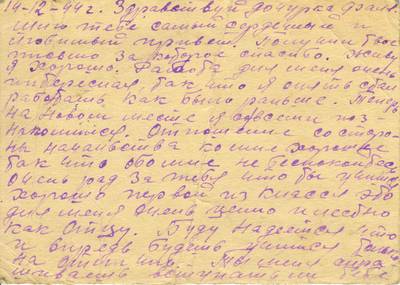 14-12-44 г. Здравствуй дочурка
Шлю тебе самый сердечный и
любимый привет. Получил твое
за которое спасибо. Живу
я хорошо. Работа для меня очень
интересная, так что я опять стал
работать как было раньше. Теперь
на новом месте я совсеми поз-
накомился. Отношение со сторо-
ны начальства ко мне хорошее
так что обо мне не беспокойтесь
очень рад за тебя что ты учишься
хорошо первой из класса это
для меня очень ценно и лестно
как отцу. Буду надеется что
и впредь будеть учится только
на отлично. Ты меня спра
шиваешь вступать ли тебе